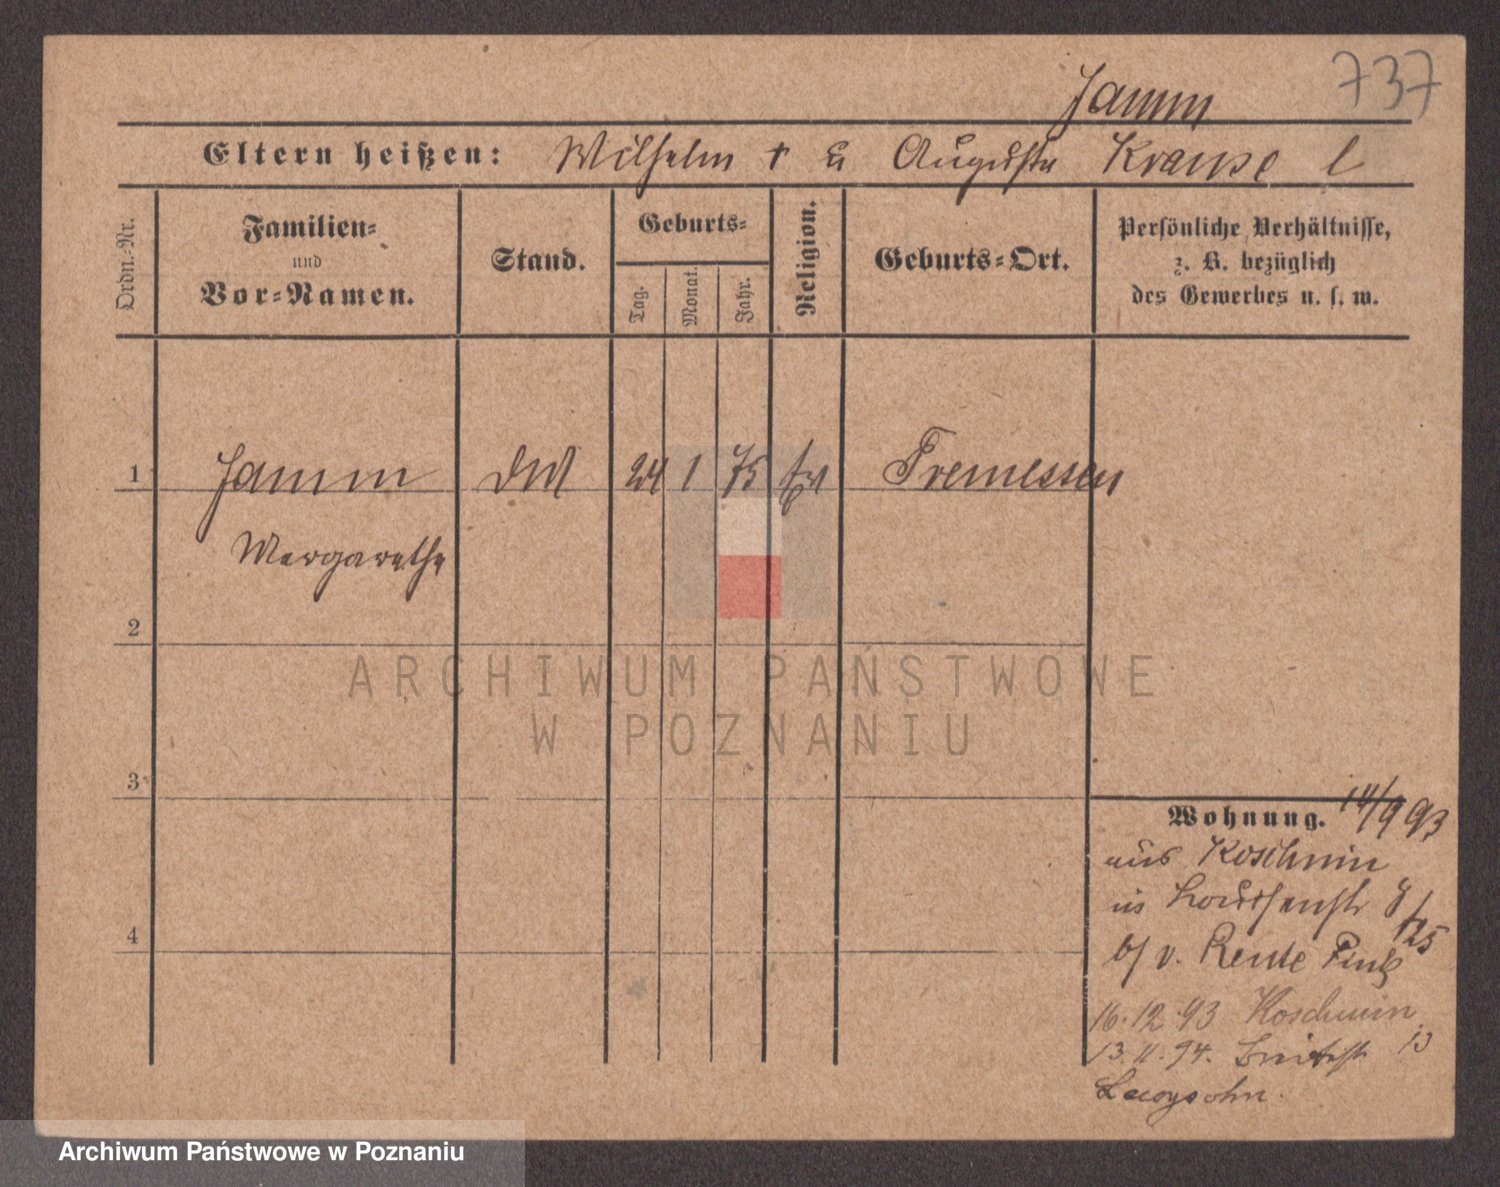 737
Jamm
Eltern heißen: Wilhelm † u Auguste Krause l
Ordn.-Nr.
Familien-
und
Vor-Namen.
Stand.
Geburts-
Tag.
Monat.
Jahr.
Religion.
Geburts-Ort.
Persönliche Verhältnisse,
z. B. bezüglich
des Gewerbes u. s. w.
1 Jamm DM 24 1 75 Ev Tremessen
Margarethe
2
ARCHIWUM PAŃSTWOWE
W POZNANIU
3
Wohnung. 14/9 93
aus Koschmin
in
4
b/ v. Rente Fink
16.12.93 Koschmin
13.11.94. 13
Lewysohn.
Archiwum Państwowe w Poznaniu